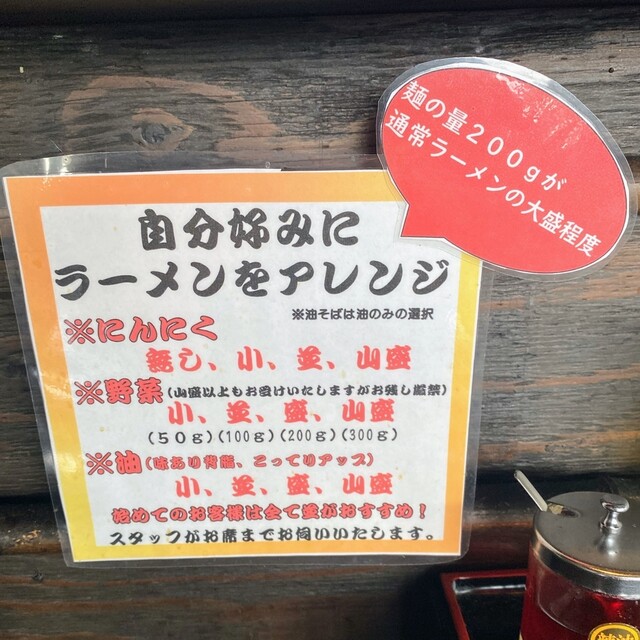 麺の量200gが
通常ラーメンの大盛程度
自分好みに
ラーメンをアレンジ
※油そばは油のみの選択
※にんにく
無し、小、並、山盛
※野菜(山盛以上もお受けいたしますがお残し厳禁)
小、並、盛、山盛
(50g)(100g)(200g)(300g)
※油(味あり背脂、こってりアップ)
小、並、盛、山盛
初めてのお客様は全て並がおすすめ!
スタッフがお席までお伺いいたします。